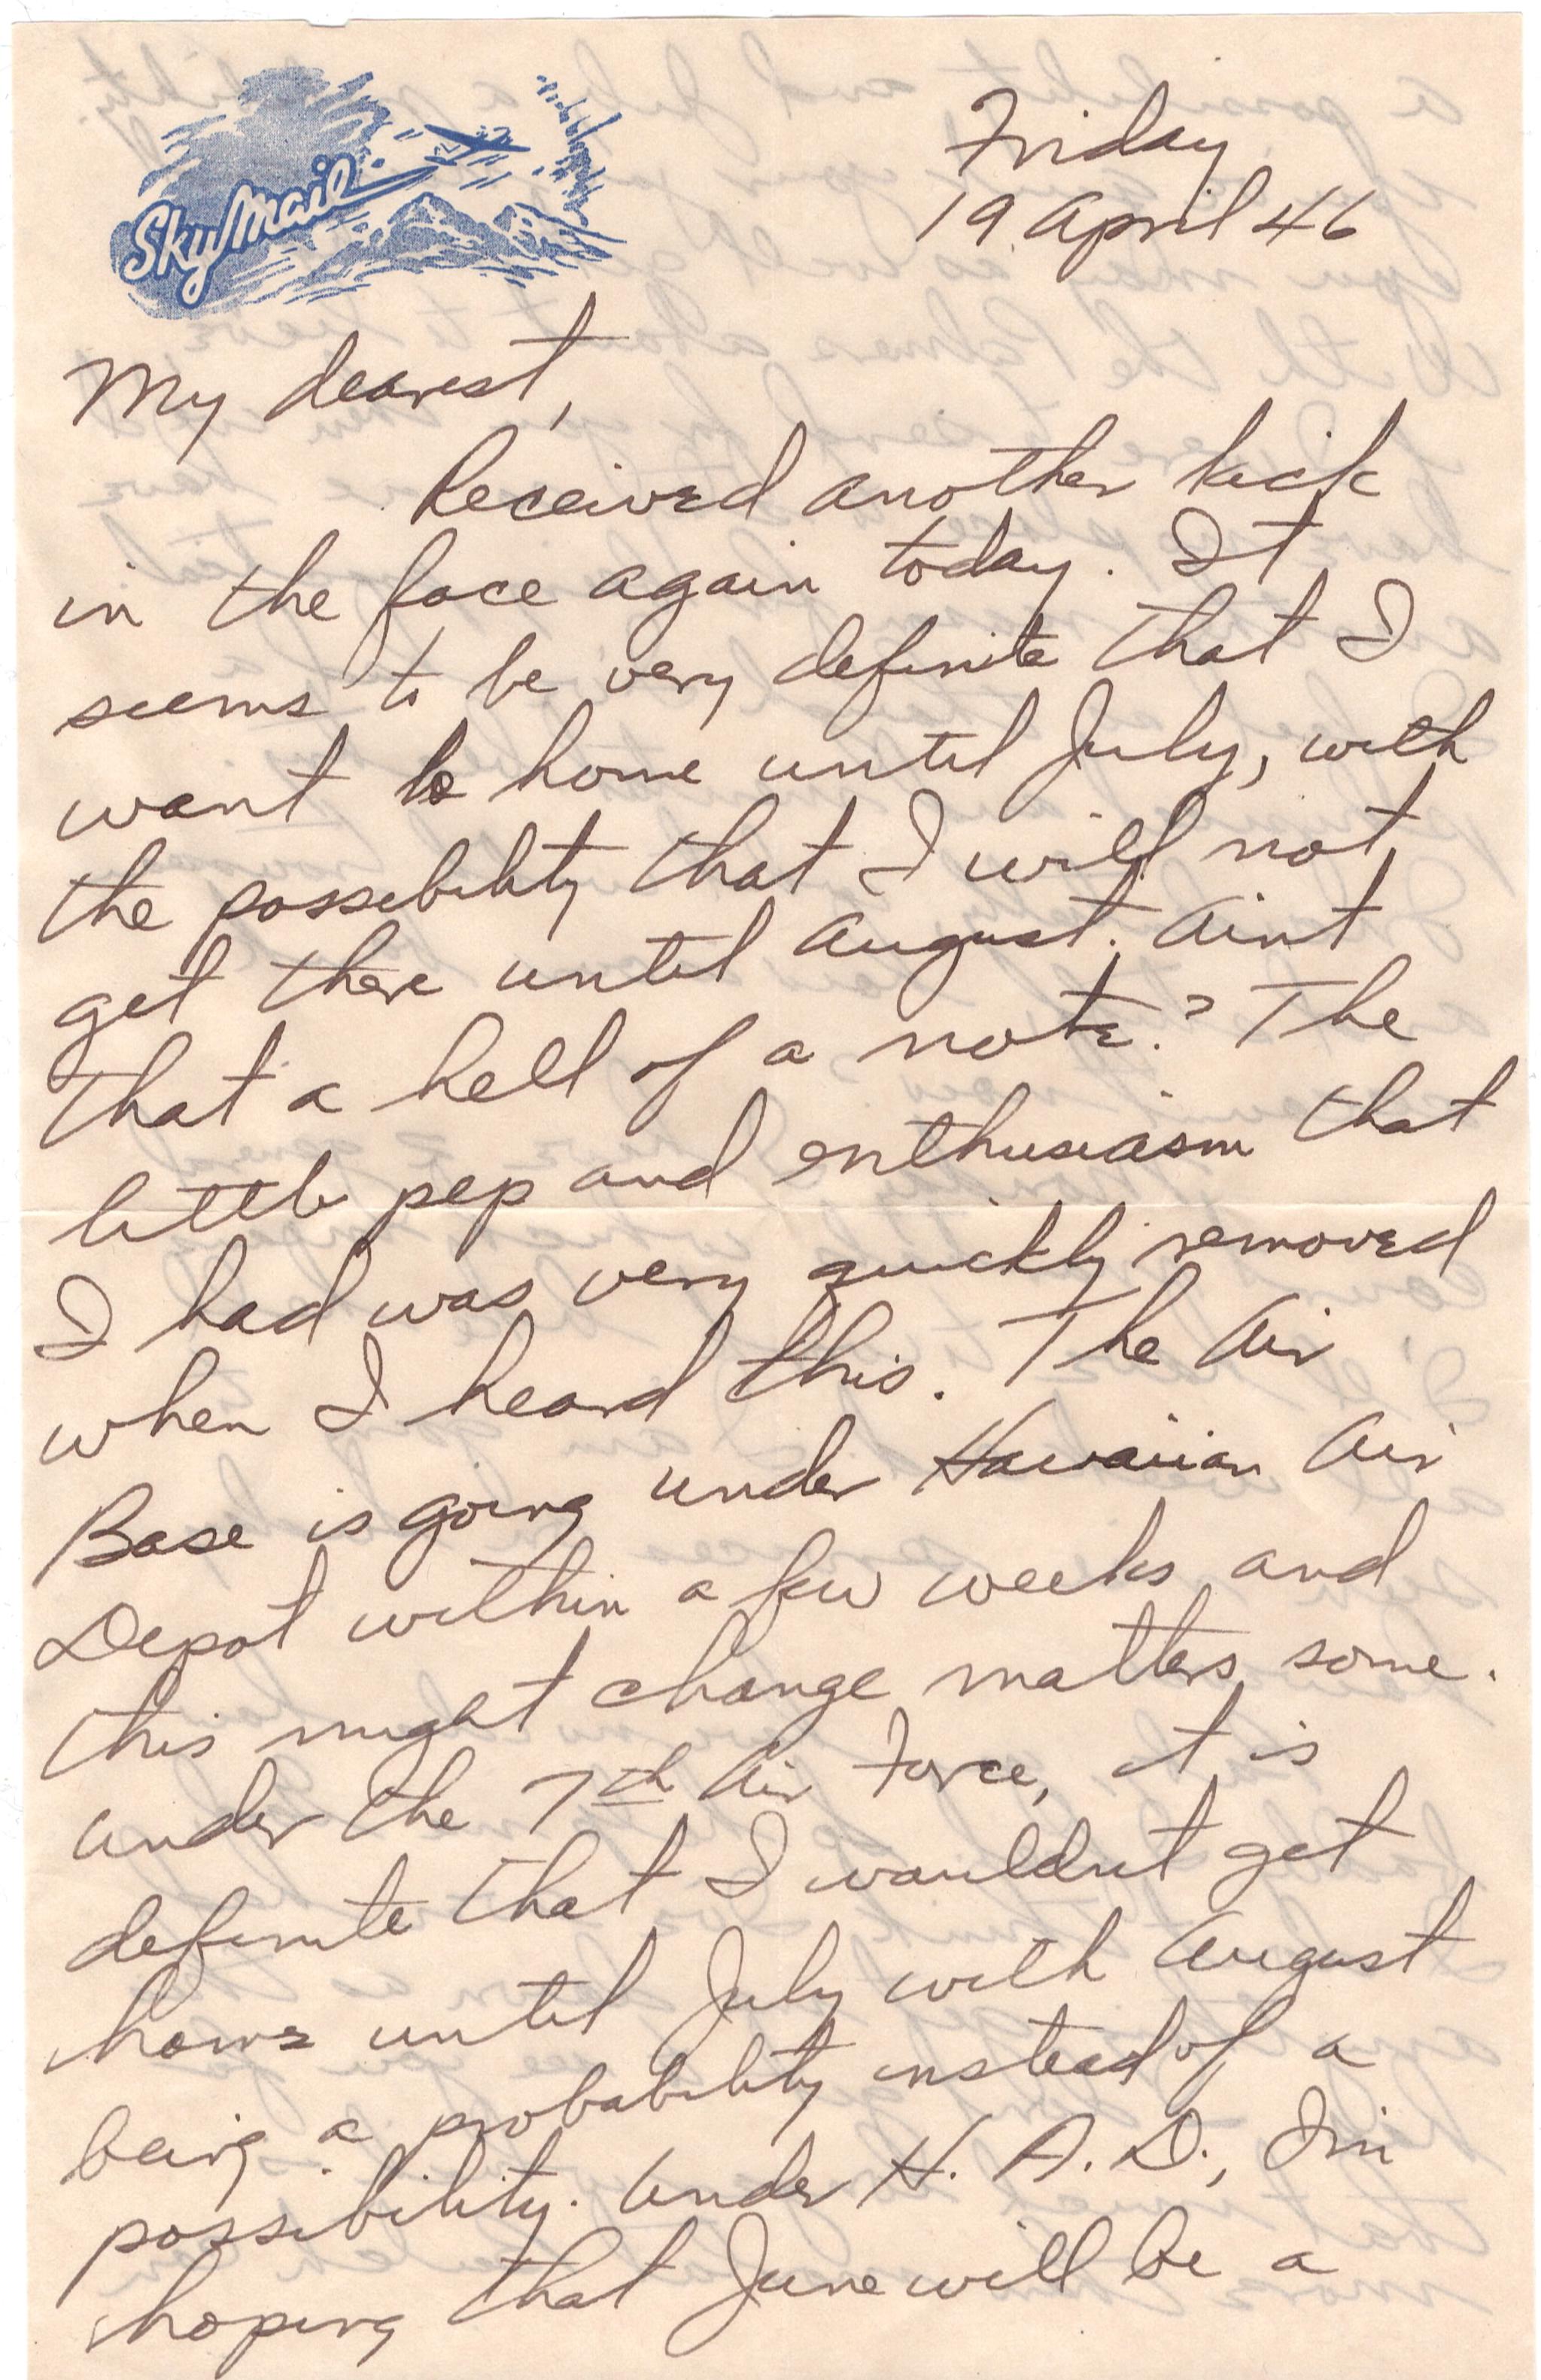 SkyMail
Friday
19 April 46
My dearest,
Received another kick
in the face again today. It
seems to be very definite that I
want be home until July, with
the possibility that I will not
get there until August. Aint
that a hell of a note? The
little pep and enthusiasm that
I had was very quickly removed
when I heard this. The Air
Base is going under Hawaiian Air
Depot within a few weeks and
this might change matters some.
Under the 7th Air Force, it is
definite that I wouldn't get
home until July with August
being a probability instead of a
possibility. Under H. A. D., I'm
hoping that June will be a